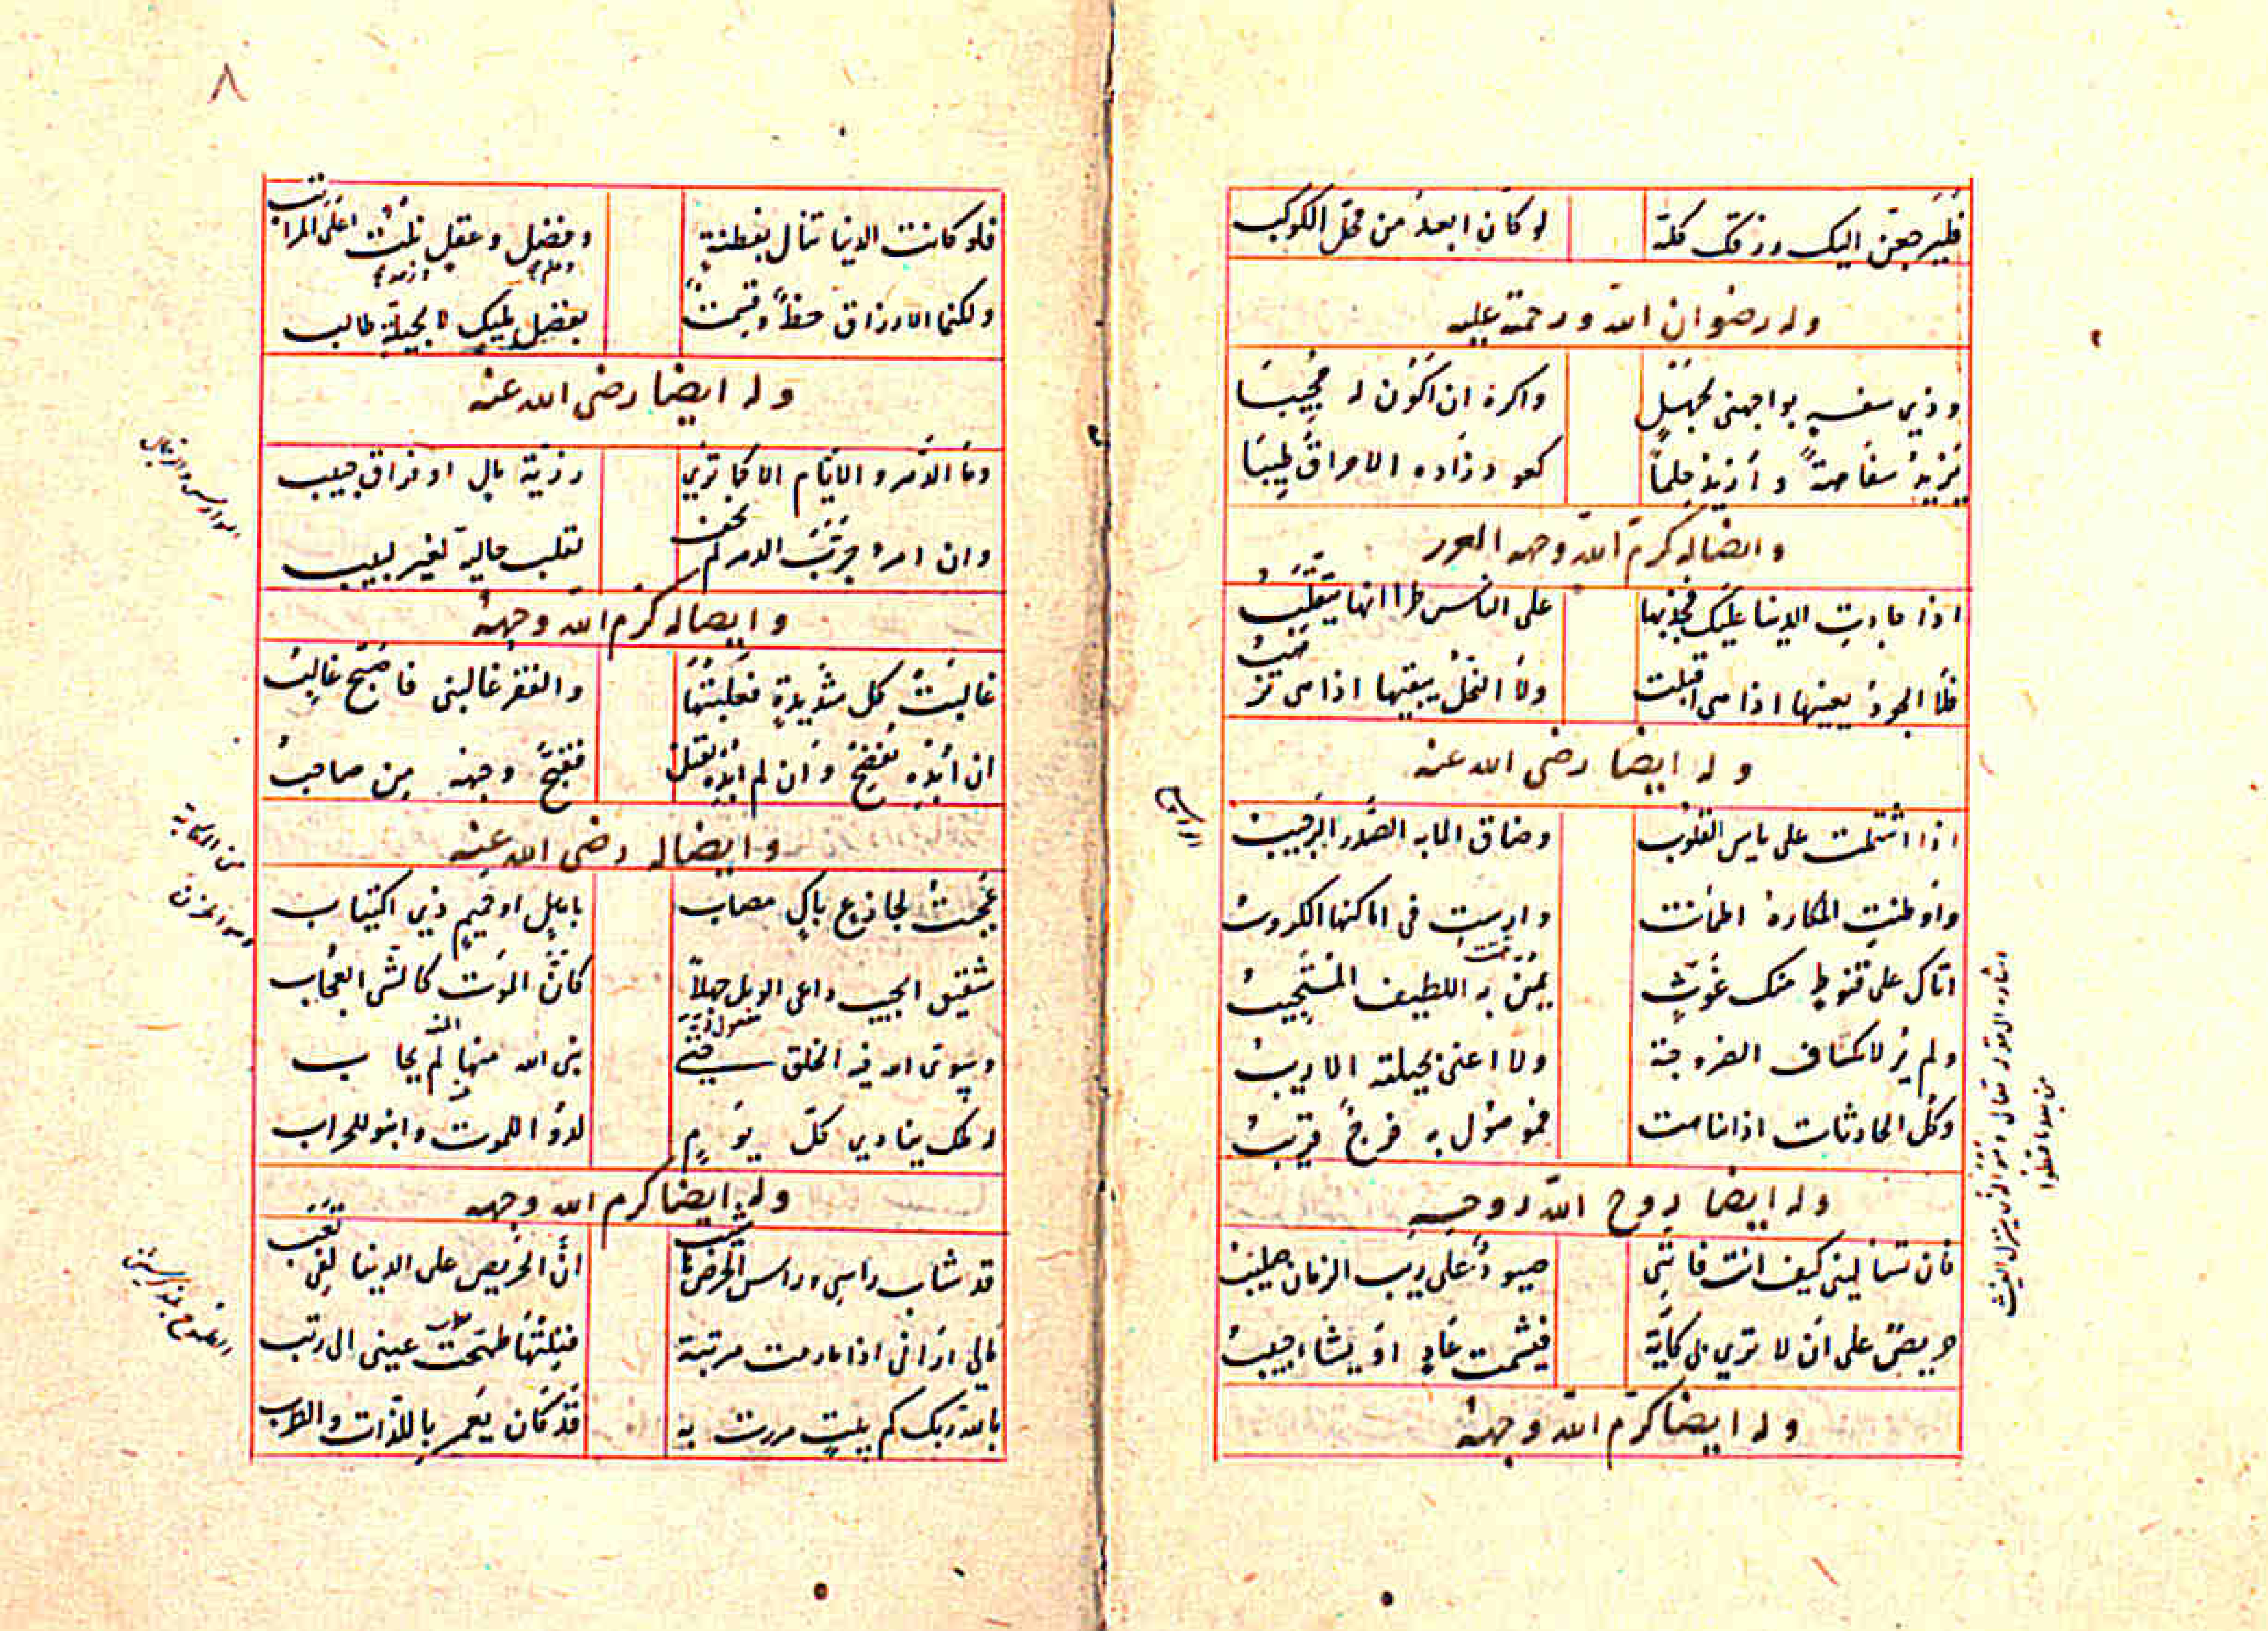 فليرجعن اليك رزقك كله لو كان ابعد من محل الكوكب
وله رضوان الله ورحمته عليه
وذي سفه يواجهنى بجهل واكره ان اكون له مجيبا
يزيد سفاهة وأزيد حلما كعود زاده الاحراق طيبا
وايضا له كرم الله وجهه
اذا جادت الدنيا عليك فجد بها على الناس طرا انها تتقلب
فلا الجود يفنيها اذا هى اقبلت ولا البخل يبقيها اذا هى تذهب
وله ايضا رضى الله عنه
اذا اشتملت على ياس القلوب وضاق لما به الصدر الرحيب
واوطنت المكاره اطمانت وارست فى اماكنها الكروب
اتاك على قنوط منك غوث يمن به اللطيف المستجيب
ولم ير لانكشاف الضر وجه ولا اغنى بحيلته الاريب
وكل الحادثات اذا تناهت فموصول به فرج قريب
وله ايضا روح الله روحه
فان تسألينى كيف انت فاننى صبور على ريب الزمان صليب
حريص على ان لا يرى بى كآبة فيشمت عاد او يساء حبيب
وله ايضا كرم الله وجهه
٨
فلو كانت الدنيا تنال بفطنة وفضل وعقل نلت اعلى المراتب
ولكنما الارزاق حظ وقسمة بفضل مليك لا بحيلة طالب
وله ايضا رضى الله عنه
وما الدهر والايام الا كما ترى رزية مال او فراق حبيب
وان امرء جرب الدهر لم يخف تقلب حاليه لغير لبيب
وايضا له كرم الله وجهه
غالبت كل شديدة فغلبتها والفقر غالبنى فاصبح غالبى
ان ابده يفضح وان لم ابده يقتل فقبح وجهه من صاحب
وايضا له رضى الله عنه
عجبت لجازع باك مصاب باهل او حميم ذى اكتياب
شقيق الجيب داعى الويل جهلا كان الموت كالشى العجاب
وسوى الله فيه الخلق حتى نبى الله منه لم يحاب
له ملك ينادي كل يوم لدوا للموت وابنوا للخراب
وله ايضا كرم الله وجهه
قد شاب راسى وراس الحرص لم يشب ان الحريص على الدنيا لفى تعب
مالى ارانى اذا ما رمت مرتبة فنلتها طمحت عينى الى رتب
بالله ربك كم بيت مررت به قد كان يعمر باللذات والطرب